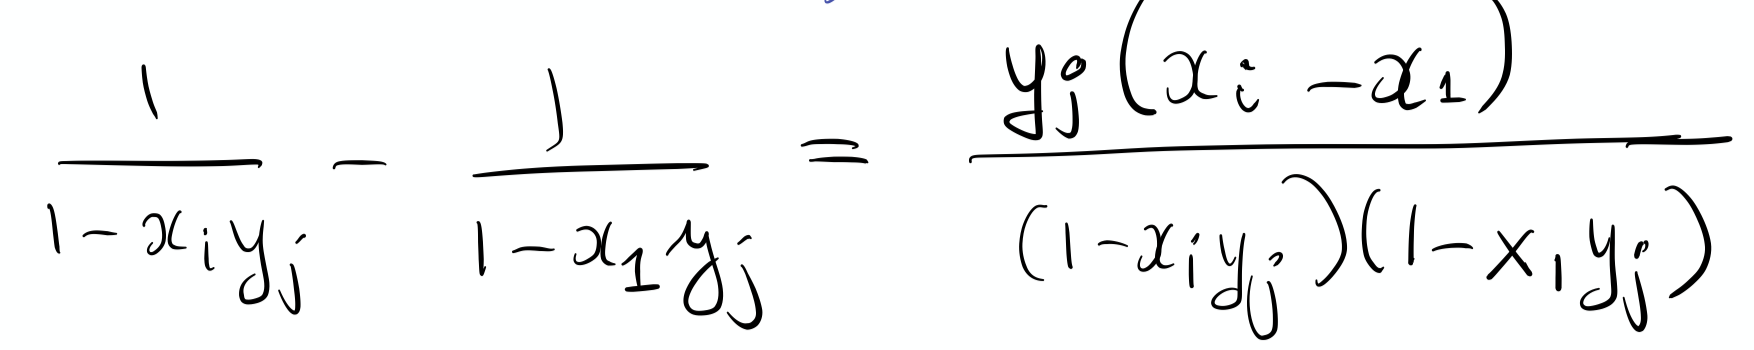 \frac{1}{1-x_i y_j} - \frac{1}{1-x_1 y_j} = \frac{y_j(x_i-x_1)}{(1-x_i y_j)(1-x_1 y_j)}